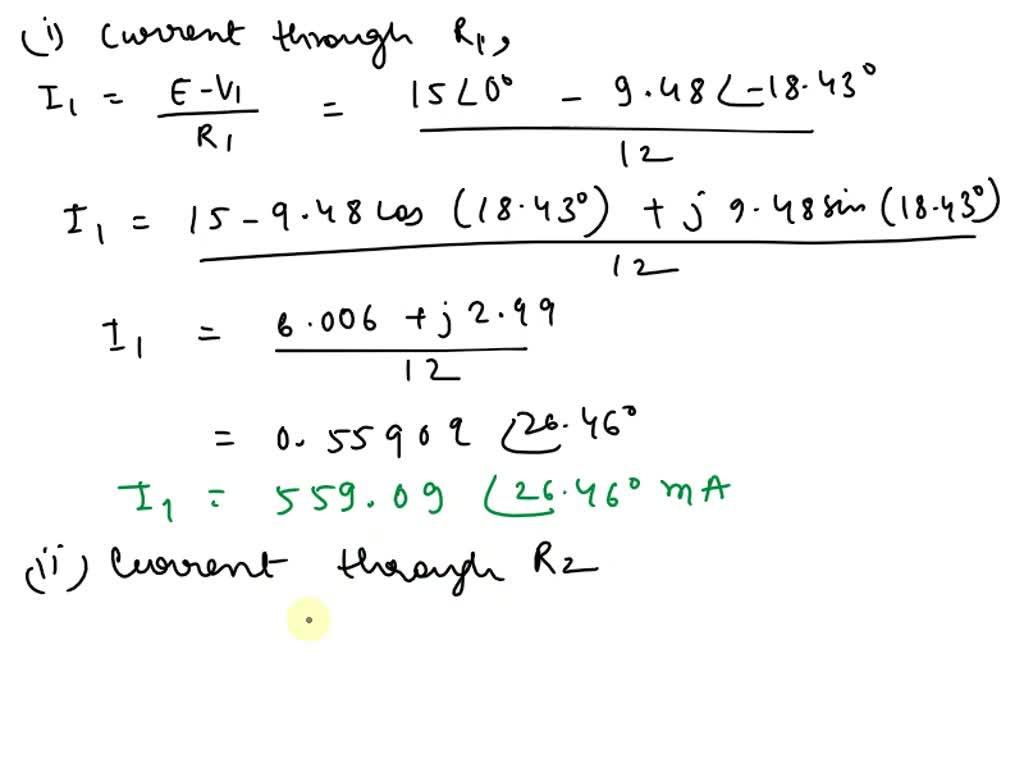 (i) Current through R1,
I1 = E-V1 / R1 = 15∠0° - 9.48∠-18.43° / 12
I1 = 15 - 9.48 cos (18.43°) + j 9.48 sin (18.43°) / 12
I1 = 6.006 + j 2.99 / 12
= 0.55909 ∠26.46°
I1 = 559.09 ∠26.46° mA
(ii) Current through R2